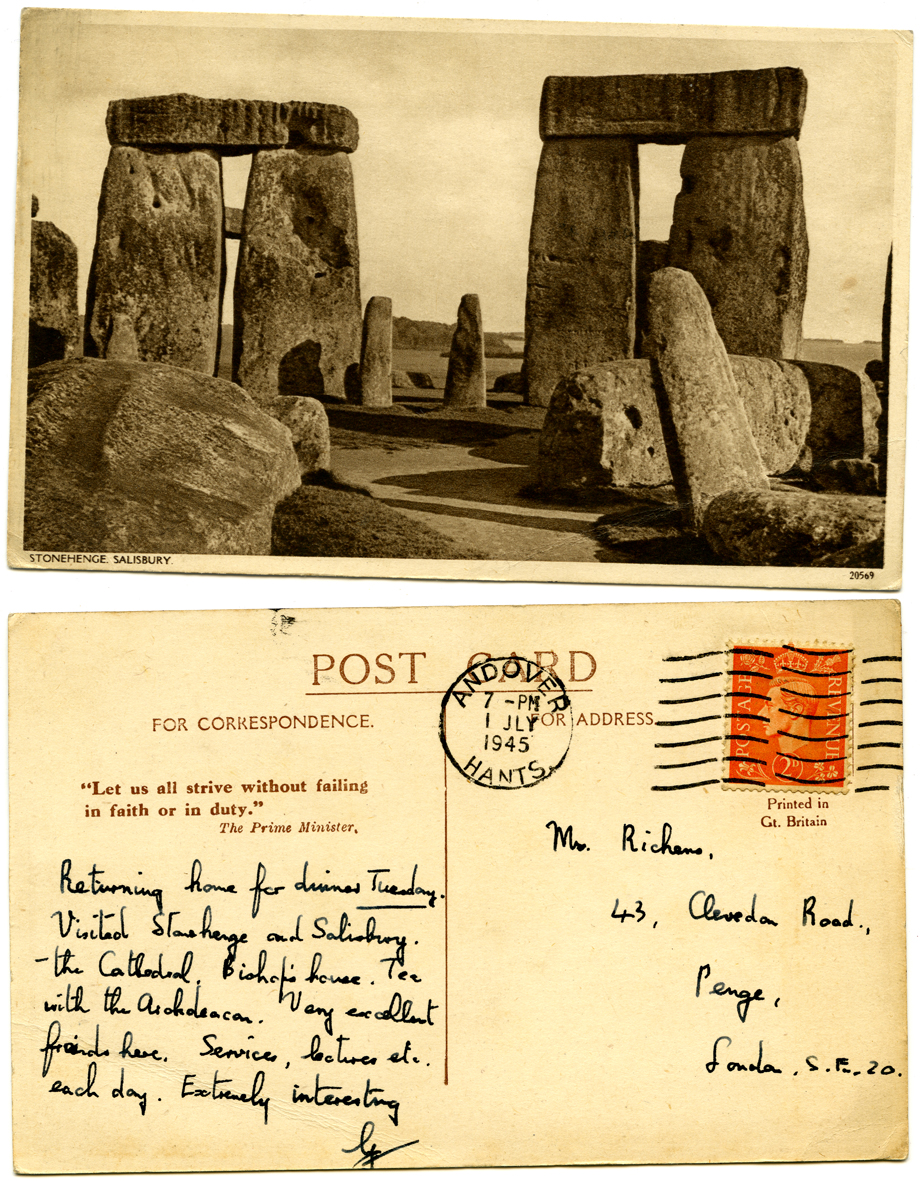 STONEHENGE. SALISBURY.
20569
POST CARD
FOR CORRESPONDENCE.
FOR ADDRESS.
ANDOVER
7 - PM
1 JLY
1945
HANTS.
POSTAGE
REVENUE
2D
Printed in
Gt. Britain
“Let us all strive without failing
in faith or in duty.”
The Prime Minister.
Returning home for dinner Tuesday.
Visited Stonehenge and Salisbury.
- the Cathedral, Bishop's house. Tea
with the Archdeacon. Very excellent
friends here. Services, lectures etc.
each day. Extremely interesting
Richens,
43, Clevedon Road.,
Penge,
London, S.E. 20.